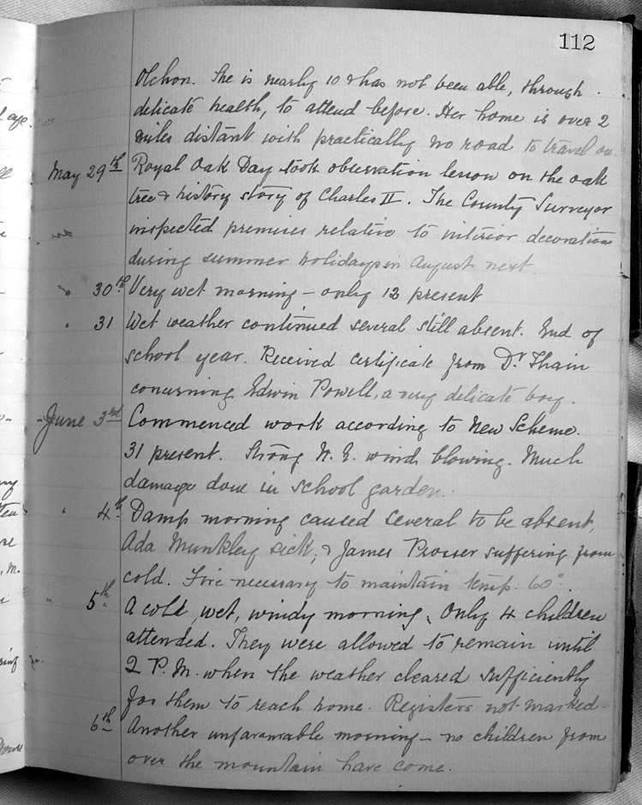 112
Olchon. She is nearly 10 & has not been able, through
delicate health, to attend before. Her home is over 2
miles distant with practically no road to travel on.
May 29th Royal Oak Day took observation lesson on the oak
tree & history story of Charles II. The County Surveyor
inspected premises relative to interior decorations
during summer holidays in August next
" 30th Very wet morning - only 12 present
" 31 Wet weather continued several still absent. End of
school year. Received certificate from Dr Thain
concerning Edwin Powell, a very delicate boy.
June 3rd Commenced work according to New Scheme.
31 present. Strong N. E. wind blowing. Much
damage done in school garden.
" 4th Damp morning caused several to be absent,
Ada Munkley sick, & James Prosser suffering from
cold. Fire necessary to maintain temp. 60°.
" 5th A cold, wet, windy morning. Only 4 children
attended. They were allowed to remain until
2 P.M. when the weather cleared sufficiently
for them to reach home. Registers not marked.
6th Another unfavourable morning - no children from
over the mountain have come.